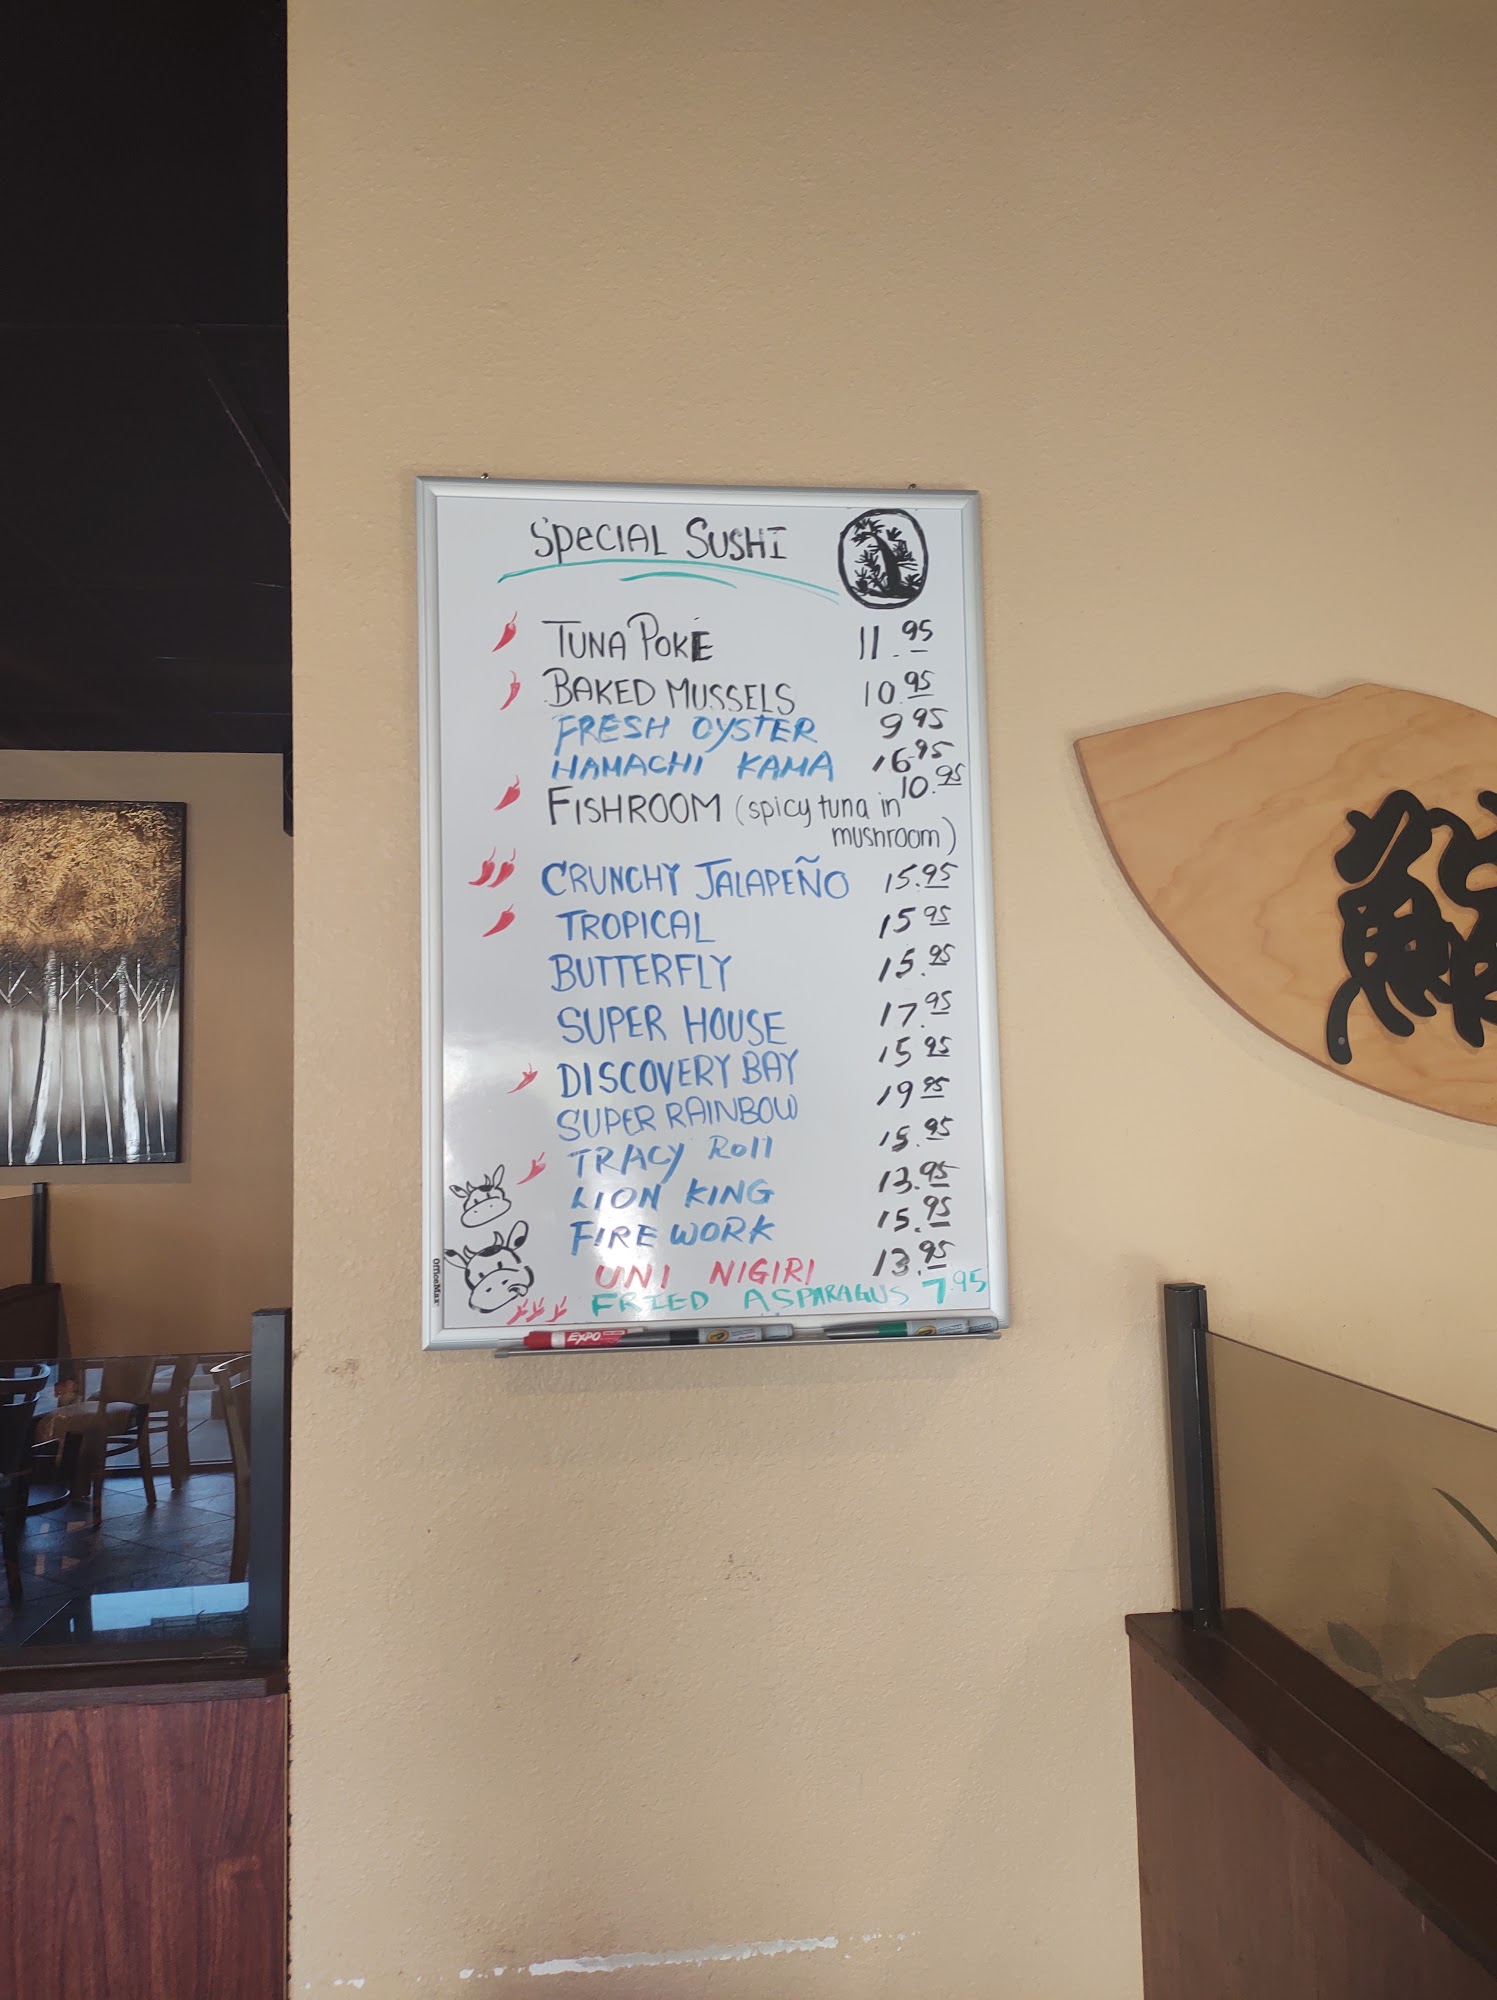 Special Sushi
Tuna Poke 11.95
Baked Mussels 10.95
FRESH OYSTER 9.95
HAMACHI KAMA 16.95
FISHROOM (spicy tuna in mushroom) 10.95
CRUNCHY JALAPEÑO 15.95
TROPICAL 15.95
BUTTERFLY 15.95
SUPER HOUSE 17.95
DISCOVERY BAY 15.95
SUPER RAINBOW 19.95
TRACY Roll 15.95
LION KING 13.95
FIRE WORK 15.95
UNI NIGIRI 13.95
FRIED ASPARAGUS 7.95
OfficeMax
EXPO